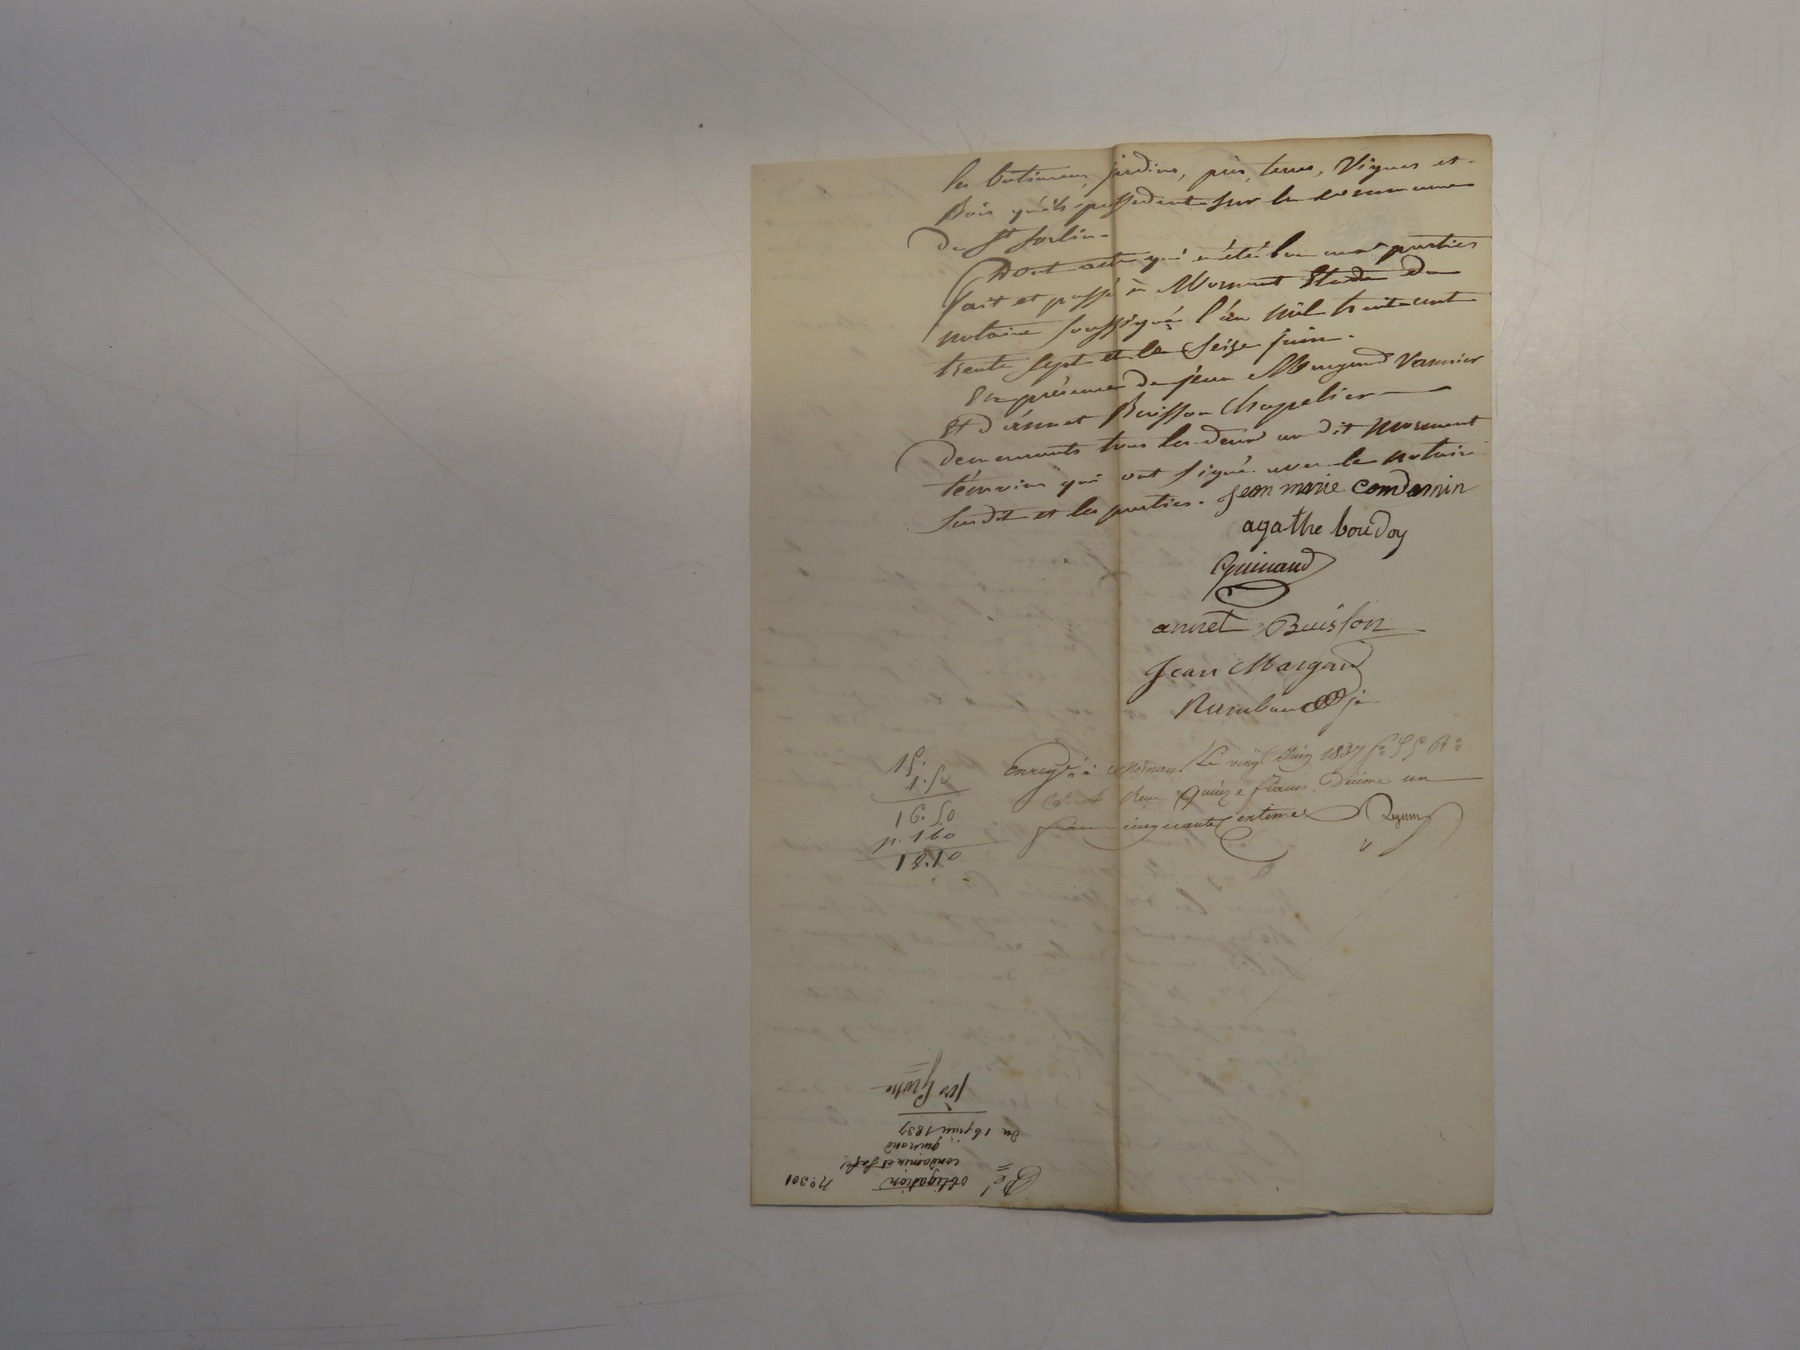 les batimens, jardins, près, terres, Vignes et
Bois qu'ils possedent sur la commune
de St Sorlin.
Dont acte qui a été lu aux parties
fait et passé à Mornant Etude du
notaire soussigné l'an mil huit cent
trente sept et le Seize juin.
En présence de jean Margand Vannier
Et d'annet Buisson Chapelier
demeurants tous les deux au dit Mornant
témoins qui ont signé avec le notaire
susdit et les parties. Jean marie comdamin
agathe boudoy
Guinand
annet Buisson
Jean Margand
Rambaud
Enregé à Mornant Le vingt Juin 1837 fo
Reçu Quinze francs. Décime un
franc cinquante Centimes
15.
1.50
16.50
1.60
18.10
No. 301
Obligation
condamin et
guinand
Du 16 juin 1837
1ere Grosse